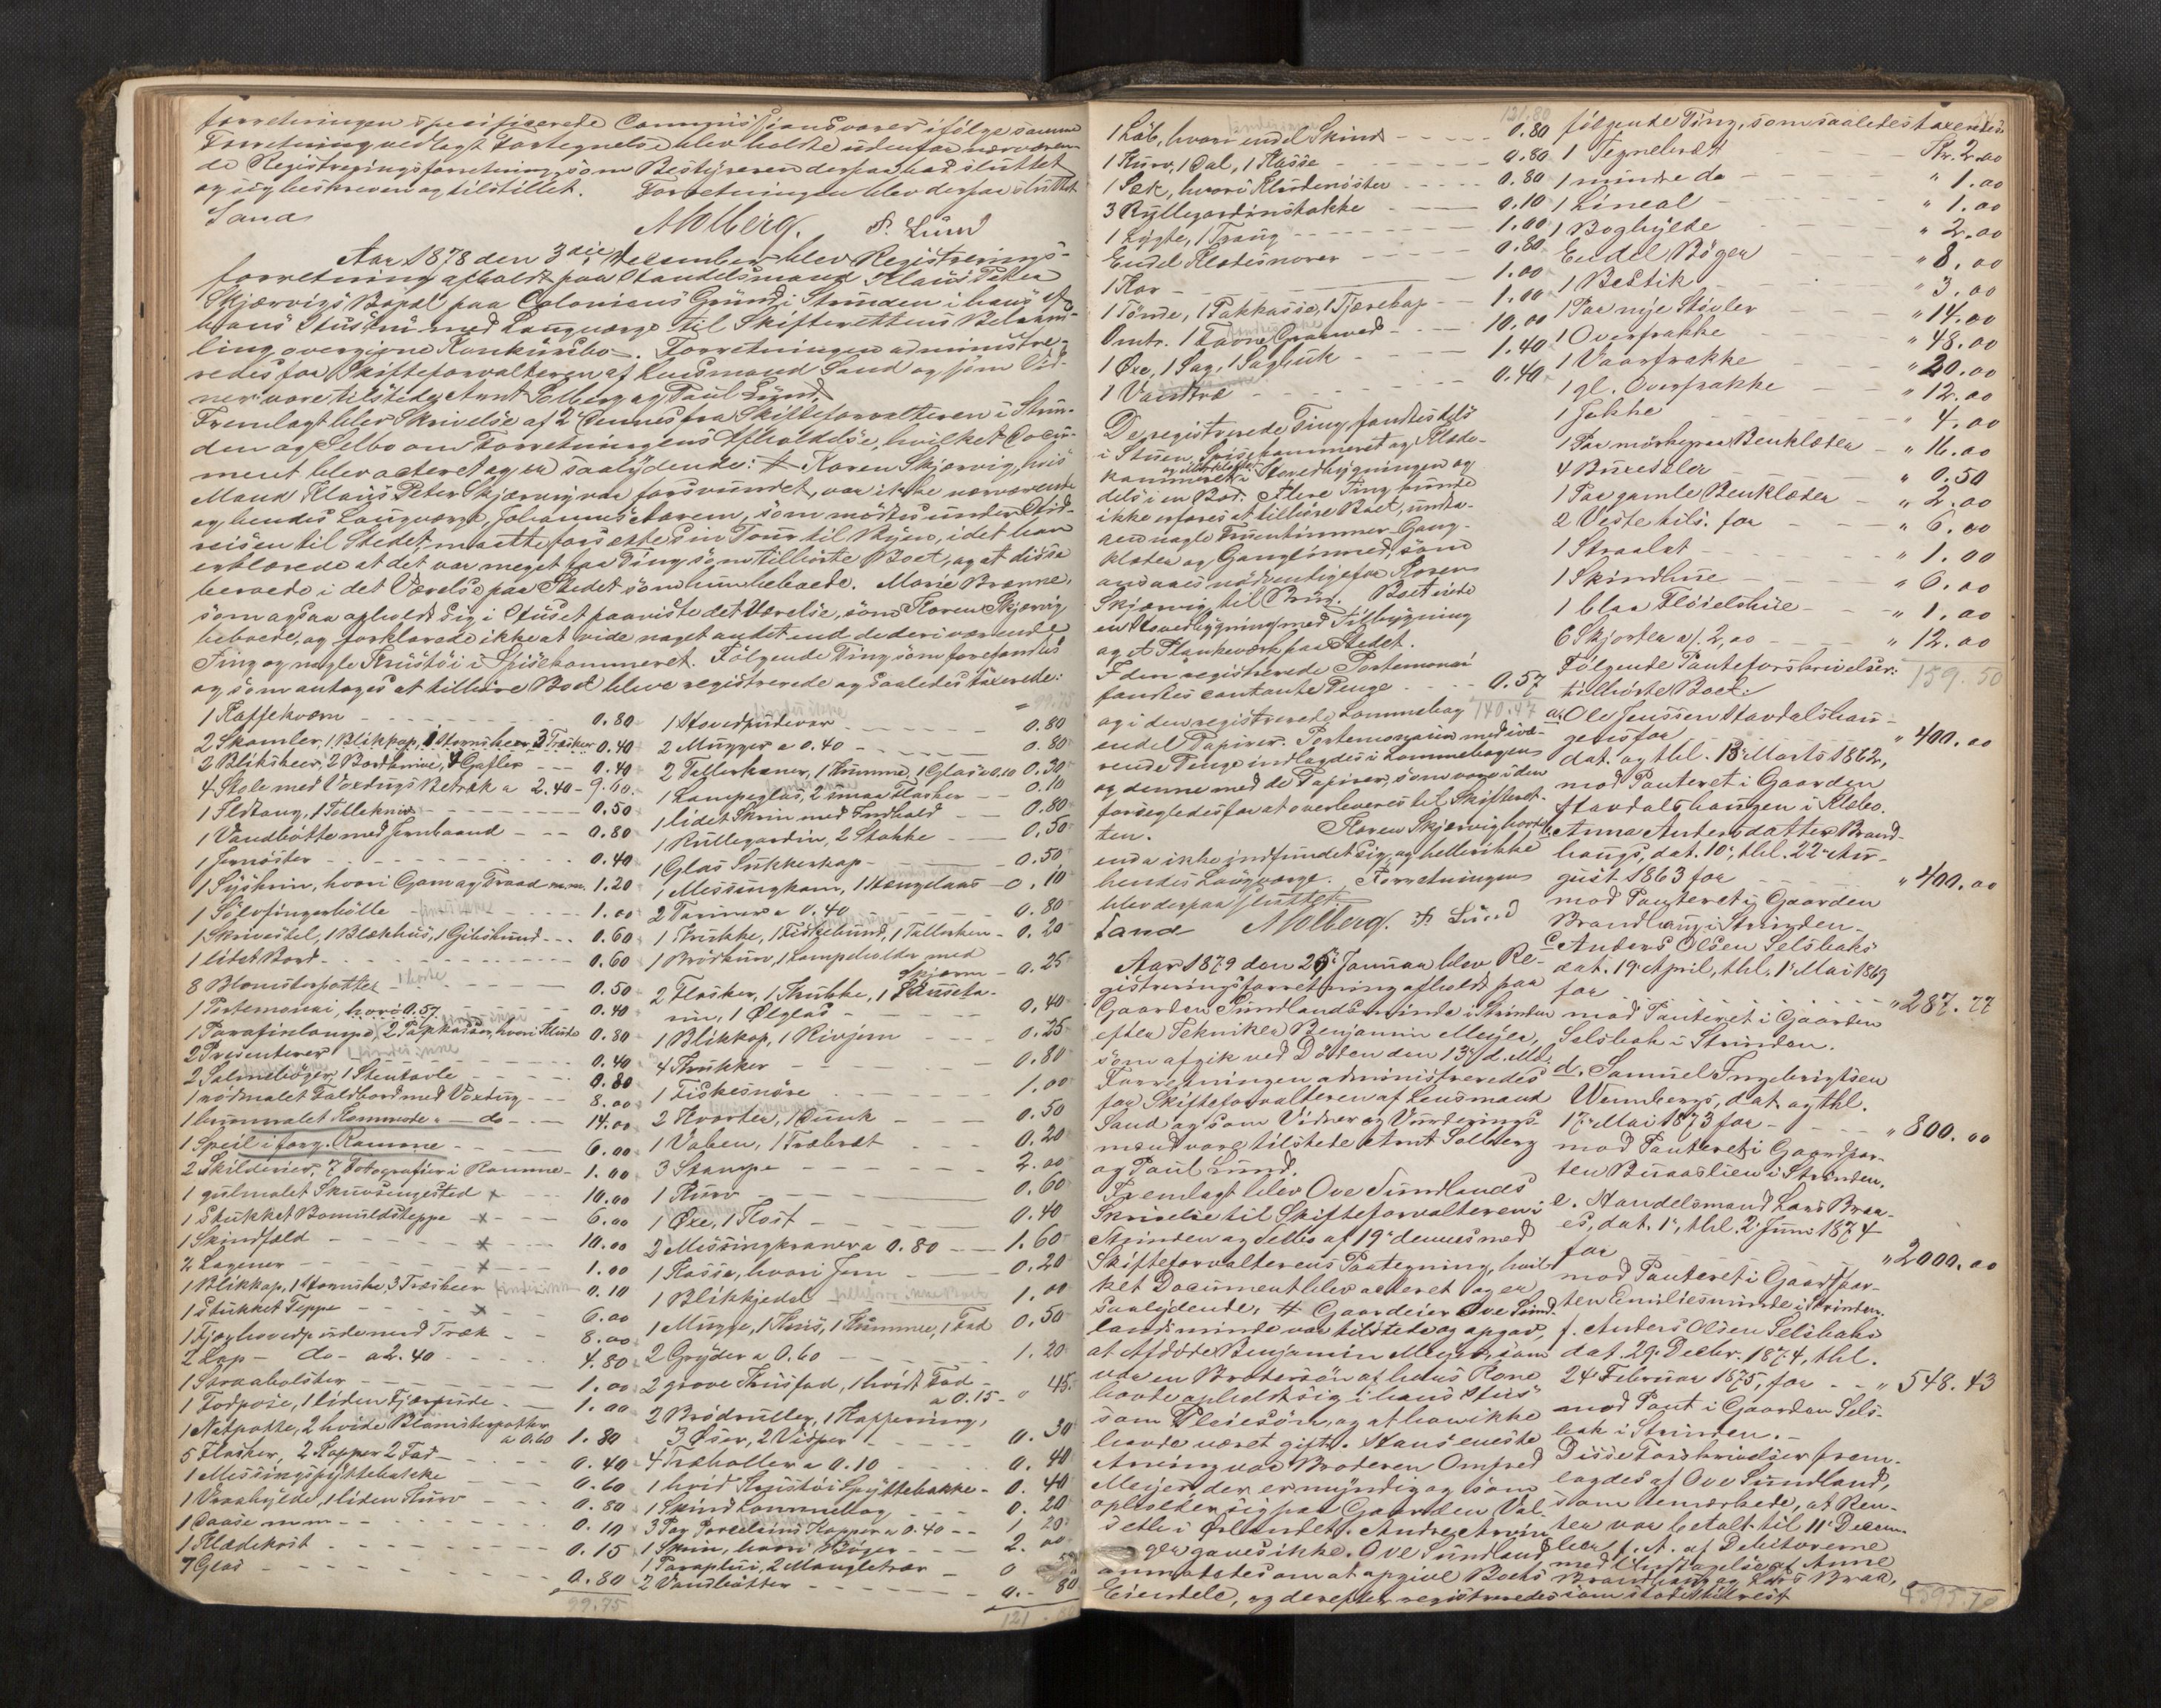 forretningen specificerede Commissionsvarer ifölge samme
Forretning vedlagt Fortegnelse blev holdte udenfor nærværen-
de Registreringsforretning, som Bestyreren derpaa
og sig beskreven og tilstillet. Forretningen blev derpaa sluttet
Sand A Solberg. P. Lund
Aar 1878 den 3die Desember blev Registrerings-
forretning afholdt paa Handelsmand Klaus Peter
Skjærvigs Bopæl paa Grund i Strinden i hans og
hans Hustru med Laugværge til Skifterettens Behand-
ling overgivne Konkursbo. Forretningen administre-
redes for Skifteforvalteren af Lensmand Sand og som Vid-
ner vare tilstede Arnt Solberg og Paul Lund.
Fremlagt blev Skrivelse af 2 dennes fra Skifteforvalteren i Strin-
den og Selbo om Forretningens Afholdelse, hvilket Docu-
ment blev acteret og er saalydende: # Karen Skjærvig, hvis
Mand Klaus Peter Skjærvig var forsvundet, var ikke nærværende
og hendes Laugværge, Johannes, som mödtes under Hid-
reisen til Stedet, maatte forsætte sin Tour til Byen, idet han
erklærede at det var meget faa Ting som tilhörte Boet, og at disse
beroede i det Værelse paa Stedet som hun beboede. Marie
som ogsaa opholdt sig i Huset paaviste det Værelse, som Karen Skjærvig
beboede, og forklarede ikke at vide noget andet end de deri værende
Ting og nogle Krustöi i Spisekammeret. Fölgende Ting som forefandtes
og som antoges at tilhöre Boet bleve registrerede og saaledes taxerede:
1 Kaffekværn 0.80
2 Skamler, 1 Blikkop, 3 Træskeer 0.40
2 Blikskeer, 2 Bordknive, 4 Gafler 0.40
4 Stole med Voxdugs Betræk a 2.40 - 9.60
1 Ildtang, 1 Tolleknive 0.50
1 Vandbötte med Jernbaand 0.80
1 0.40
1 Syskrin, hvori Garn og Traad m.m. 1.20
1 Sölvfingerbölle 1.00
1 Skrivestel, 1 Blækhus, 1 Gibshund 0.60
1 lidet Bord 0.60
8 Blomsterpotter 0.50
1 Portemonai, hvori 0.57 0.40
1 Parafinlampe, 2 Papkasser, hvori Klude 0.80
2 Presenterer 0.40
2 Salmeböger, 1 Stentavle 0.80
1 rödmalet Foldbord med Voxdug 8.00
1 brunmalet Kommode - do - 14.00
1 Speil i forg. Ramme 6.00
2 Skilderier, 7 Fotografier i Ramme 1.00
1 gulmalet Skuvsengested x 10.00
1 stukket Bomuldsteppe x 6.00
1 Skindfeld x 10.00
2 Lagener x 1.00
1 Blikkop, 3 Træskeer 0.10
1 stukket Teppe x 6.00
1 Fjærhovedpude med Træk 8.00
2 Lap - do - a 2.40 4.80
1 Straabolster 1.00
1 Fodpose, 1 liden Fjærpude 1.00
1 Natpotte, 2 hvide Blomsterpotter
a 0.60 1.80
5 Flasker, 2 Kopper 2 Fad 0.40
1 Messingspyttebakke 0.60
1 Vraahylde, 1 liden Kurv 0.80
1 Daase m.m. 0.10
1 Klædekost 0.15
7 Glas 0.80
99.75
99.75
1 Hovedpudevar 0.80
2 Mugger a 0.40 0.80
2 Tallerkener, 1 Kumme, 1 Glas a 0.10 0.30
1 Lampeglas, 2 smaa Flasker 0.10
1 lidet Skrin med Indhold 0.80
1 Rullegardin, 2 Stokke 0.50
1 Glas Sukkerkop 0.50
1 Messingkam, 1 Hængelaas 0.10
2 Tariner a 0.40 0.80
1 Krukke, 1 Fiskebund, 1 Tallerken 0.20
1 Brödkurv, 1 Lampeholder med
Skjærm 0.25
2 Flasker, 1 Krukke, 1
1 Ölglas 0.40
1 Blikkop, 1 Rivjern 0.25
4 Krukker 0.80
1 Fiskesnöre 1.00
2 Kvarter, 1 Dunk 0.50
1 Vaben, 1 Træbræt 0.20
3 Stampe 2.00
1 Kurv 0.60
1 Öxe, 1 Kost 0.40
2 Messingkraner a 0.80 1.60
1 Kasse, hvori Jern 0.20
1 Blikkjedel 1.00
1 Mugge, 1 Krus, 1 Kumme, 1 Fad 0.50
2 Gryder a 0.60 1.20
2 grove Krusfad, 1 hvidt Fad
a 0.15 0 45
2 Brödruller, 1 Kappering,
3 Öser, 2 Visper 0.30
4 Træboller a 0.10 0.40
1 hvid Krustöi Spyttebakke 0.40
1 Skind Lommebog 0.20
3 Par Porcelains Kopper a 0.40 1 20
1 Skrin, hvori Böger 2.00
1 Paraplui, 2 Mangletræer
2 Vandbötter 0. 80
121.80
121.80
1 Löb, hvori endel Skind 0.80
1 Kurv, 1 Bal, 1 Kasse 0.80
1 Sæk, hvori Kludenöster 0.80
3 Rullegardinstokke 0.10
1 Lygte, 1 Traug 1.00
Endel Klædesnorer 0.80
1 Kar 1.00
1 Tönde, 1 Pakkasse, 1 Tjærekop 1.00
Omtr. 1 Favn Granved 10.00
1 Öxe, 1 Sag, 1 Sagbuk 1.40
1 Vasketræ 0.40
De registrerede Ting fandtes dels
i Stuen, Spisekammeret og Klæde-
kammeret i Hovedbygningen og
dels i en Bod. Flere Ting kunde
ikke erfares at tilhöre Boet, undta-
gen nogle Fruentimmer Gang-
klæder og Ganglinned, som
ansaaes nödvendige for Karen
Skjærvig til Brug. Boet eiede
en Hovedbygning med Tilbygning
og et Plankeværk paa Stedet.
I den registrerede Portemonai
fandtes contante Penge 0.57
og i den registrerede Lommebog 140.47
endel Papirer. Portemonaien med væ-
rende Penge indlagdes i Lommebogen
og denne med de Papirer, som vare i den
forsegledes for at overleveres til Skifteret-
ten. Karen Skjærvig havde
enda ikke indfundet sig, og hellerikke
hendes Laugværge. Forretningen
blev derpaa sluttet
Sand A Solberg. P. Lund
Aar 1879 den 25 Januar blev Re-
gistreringsforretning afholdt paa
Gaarden Sundlandsminde i Strinden
efter Tekniker Benjamin Meyer,
som afgik ved Döden den 13 d. Md.
Forretningen administreredes
for Skifteforvalteren af Lensmand
Sand og som Vidner og Vurderings-
mænd vare tilstede Arnt Solberg
og Paul Lund.
Fremlagt blev Ove Sundlands
Skrivelse til Skifteforvalteren i
Strinden og Selbo af 19 dennes med
Skifteforvalterens Paategning, hvil-
ket Document blev acteret og er
saalydende, # Gaardeier Ove Sund-
landsminde var tilstede og opgav,
at Afdöde Benjamin Meyer, som
var en Brodersön af hans Kone
havde opholdt sig i hans Hus
som Pleiesön, og at han ikke
havde været gift. Hans eneste
Arving var Broderen Omfred
Meyer, der er myndig og som
opholder sig paa Gaarden Val-
i Ørlandet. Andre Arvin-
ger gaves ikke. Ove Sundland
anmodedes om at opgive Boets
Eiendele, og derefter registreredes
fölgende Ting, som saaledes taxeredes
1 Tegnebræt Kr. 2.00
1 mindre do " 1.00
1 Lineal " 1.00
1 Boghylde " 2.00
Endel Böger " 8.00
1 Bestik " 3.00
1 Par nye Stövler " 14.00
1 Overfrakke " 48.00
1 Vaarfrakke " 20.00
1 gl. Overfrakke " 12.00
1 Jakke " 4.00
1 Par mörkegraa Benklæder " 16.00
4 Buxeseler " 0.50
1 Par gamle Benklæder " 2.00
2 Veste tils. for " 6.00
1 Straahat " 1.00
1 Skindhue " 6.00
1 blaa Flöielshue " 1.00
6 Skjorter a 2,00 " 12.00
Fölgende Panteforskrivelser: 159.50
tilhörte Boet:
a. Ole Jenssen Stavdalshau-
gens for " 400.00
dat. og thl. 13 Marts 1862,
mod Panteret i Gaarden
Stavdalshaugen i Klæbo.
b. Anna Andersdatter Brand-
haugs, dat. 10, thl. 22 Au-
gust 1863 for " 400.00
mod Panteret i Gaarden
Brandhaug i Strinden
c. Anders Olsen Selsbaks
dat. 19 April, thl. 1 Mai 1869
for " 287.77
mod Panteret i Gaarden
Selsbak i Strinden.
d. Samuel Ingebrigtsen
Wennbergs, dat. og thl.
17 Mai 1873 for " 800.00
mod Panteret i Gaardpar-
ten Buraaslien i Strinden.
e. Handelsmand Lars Braa-
es, dat. 1, thl. 2 Juni 1874
for " 2000.00
mod Panteret i Gaardpar-
ten Emiliesminde i Strinden.
f. Anders Olsen Selsbaks
dat. 29 Decbr. 1874, thl.
24 Februar 1875, for " 548.43
mod Pant i Gaarden Sels-
bak i Strinden.
Disse Forskrivelser frem-
lagdes af Ove Sundland,
som bemærkede, at Ren-
ter var betalt til 11 Decem-
ber f. A. af Debitorerne
med Undtagelse af Anne
Brandhaug og Lars Braa,
som
4595.70